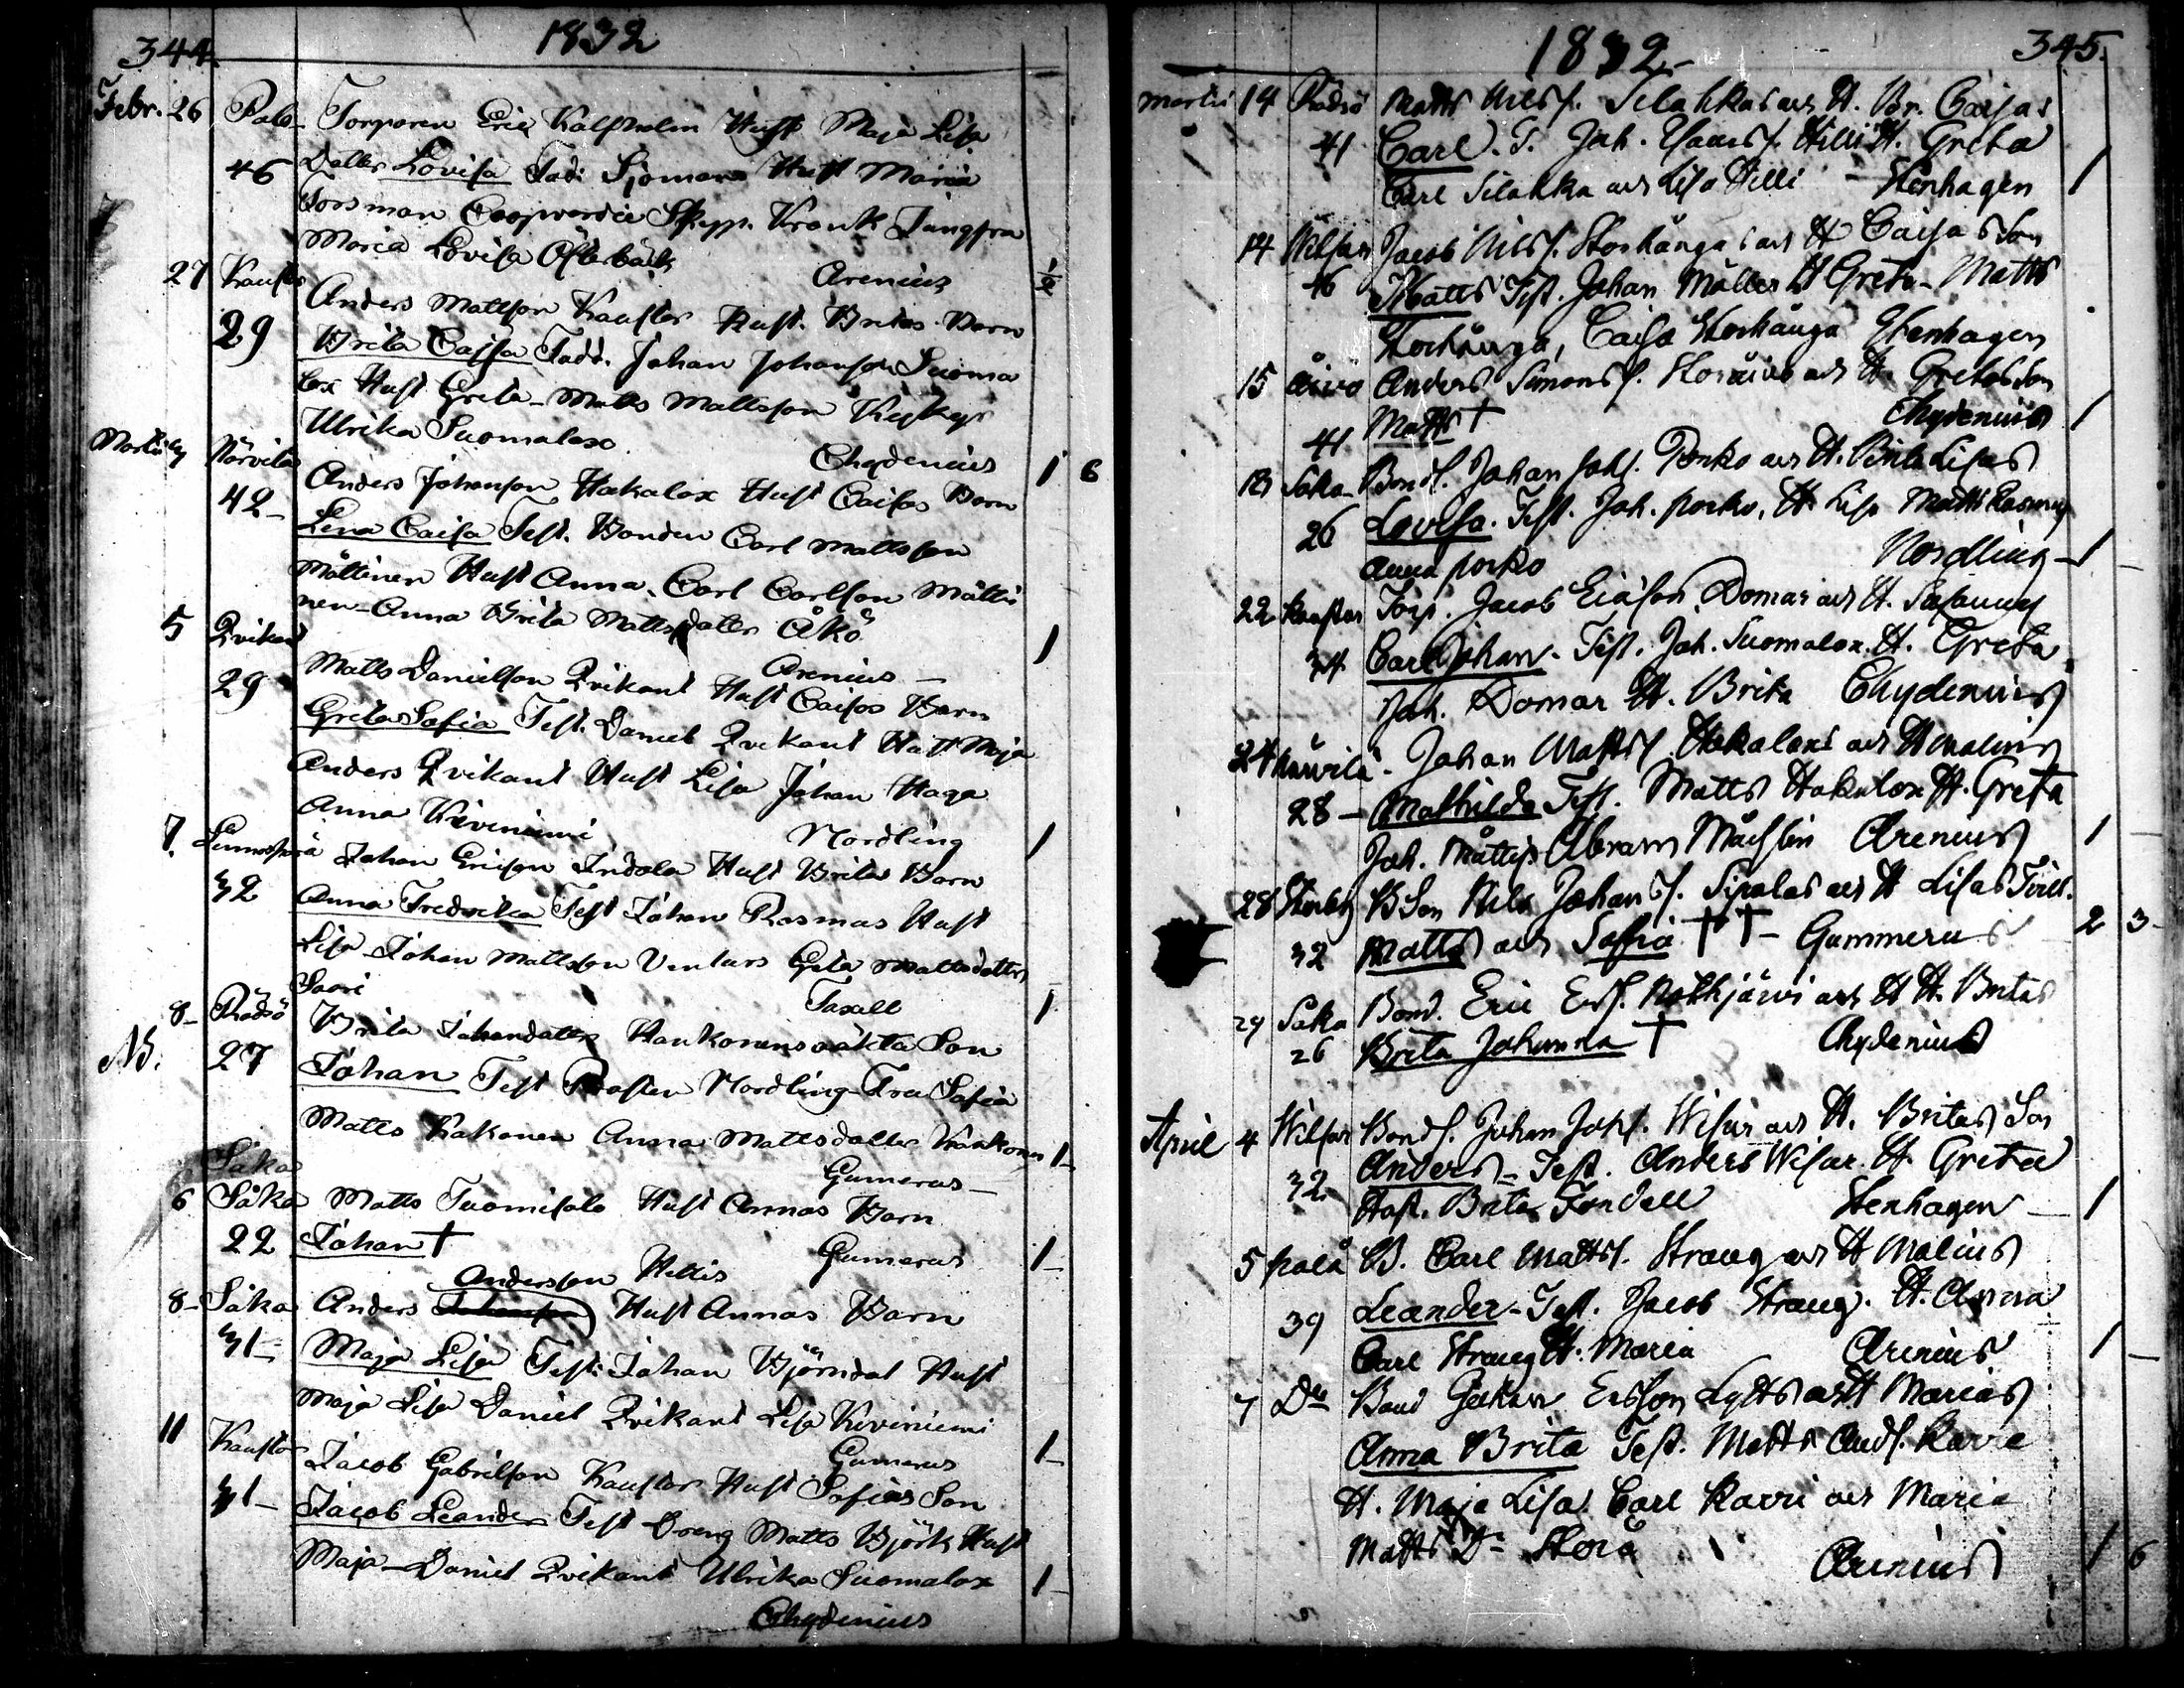 344. 1832
Febr. 26 Palo Torparen Eric Kalfholm Hust Maja Lisa
46 Dotter Lovisa Fadd: Sjoman Hust Maria
Forsman Coopverdie Skepp. Kronk Jungfru
Maria Lovisa Österbäck Arenius 1/2
27 Kaustar Anders Mattson Kaustar Hust. Britas Barn
29 Brita Cajsa Fadd. Johan Johanson Suoma
lax Hust Greta - Matts Mattsson
Ulrika Suomalax Chydenius 1 6
Martii Närvilä Anders Johanson Hakalax Hust Caisas Barn
42 - Lena Caisa Test. Bonden Carl Mattsson
Måttinen Hust Anna. Carl Carlson Mätti
nen - Anna Brita Mattsdotter Åkö
Arenius 1
5 Qvikant Matts Danielson Qvikant Hust Caisas Barn
29 Greta Safia Test. Daniel Qvikant Hust Maja
Anders Qvikant Hust Lisa Johan Haga
Anna Kiviniemi Nordling 1
7. Johan Ericson Indola Hust Britas Barn
32 Anna Fredrika Test Johan Rasmus Hust
Lisa - Johan Mattsson Ventus Greta Mattsdotter
Saari Taxell 1
8 - Rödsö Brita Johansdotter Hankonens oäkta Son
NB. 27 Johan Test Prosten Nordling - Fru Safia
Matts Kakonen Anna Mattsdotter Kankonen 1 -
Gumerus -
Såka
6 Såka Matts Tuomisalo Hust Annas Barn
22 Johan † Gumerus 1 -
Andersson Hellis
8 - Såka Anders Hust Annas Barn
31 - Maja Lisa Test. Johan Björndal Hust
Maja Lisa Daniel Qvikant Lisa Kiviniemi
Gumerus 1 -
11 Kaustar Jacob Gabrielson Kaustar Hust Safias Son
31 - Jacob Leander Test Dreng Matts Björk Hust
Maja - Daniel Qvikant Ulrika Suomalax 1 -
Chydenius
1832 - 345.
Martii 14 Rödsö Matts Nilss. Silahkas och H. Br. Caijas
41 Carl. T. Joh. Hanss. Hilli H. Greta
Carl Silahka och Lisa Hilli - Stenhagen 1
14 Wilsar Jacob Nilss. Storhånga och H Caisas Son
46 Matts Test. Johan Möller H Greta - Matts
Storhånga, Caisa Storhånga Stenhagen
15 Åivo Anders Simonss. Storåivo och H. Gretas Son
41 Matts † Chydenius 1
Såka - Bonds. Johan Johs. Porko och H. Brita Lisas
26 Lovisa. Test. Joh. porko, H. Lisa Matts Rasmus
Anna porko Nordling - 1
22 Kaustar Torp. Jacob Ericson Domar och H. Susannas
34 Carl Johan. Test. Joh. Suomalax. H. Greta
Joh. Domar H. Brita Chydenius
24 Närvilä - Johan Mattss Hakalax och H Malins
28 - Mathilda Test. Matts Hakalax H. Greta
Joh. Måttus Abram Arenius 1
28 Storby BSon Nils Johans. Sipalas och H Lisas Tvill.
32 Matts och Safia † † - Gummerus 2 3 -
29 Såka Bond. Eric Ers. och H. Britas
26 Brita Johanna † Chydenius
April 4 Wilsar Bonds. Johan Johs. Wisar och H. Britas Son
32 Anders - Test. Anders Wisar. H. Greta
Hust. Brita Tondell Stenhagen - 1
5 palå B. Carl Mattss. Strang och H Malins
39 Leander - Test. Jacob Strang. H. Anna
Carl Strang H. Maria Arenius 1 -
7 Do Bond Johan Ersson Lytts och H Marias
Anna Brita Test. Matts Ands. Karri
H. Maja Lisa. Carl Karri och Maria
Matts Dr Storå Arenius 1 6